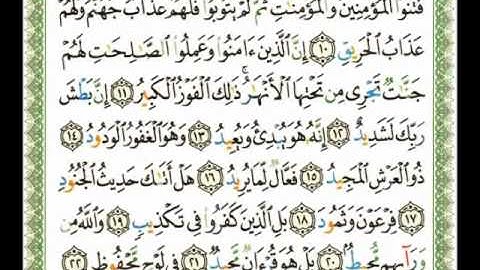 فَتَنُوا۟ ٱلْمُؤْمِنِينَ وَٱلْمُؤْمِنَـٰتِ ثُمَّ لَمْ يَتُوبُوا۟ فَلَهُمْ عَذَابُ جَهَنَّمَ وَلَهُمْ
عَذَابُ ٱلْحَرِيقِ ١٠ إِنَّ ٱلَّذِينَ ءَامَنُوا۟ وَعَمِلُوا۟ ٱلصَّـٰلِحَـٰتِ لَهُمْ
جَنَّـٰتٌ تَجْرِى مِن تَحْتِهَا ٱلْأَنْهَـٰرُ ۚ ذَٰلِكَ ٱلْفَوْزُ ٱلْكَبِيرُ ١١ إِنَّ بَطْشَ
رَبِّكَ لَشَدِيدٌ ١٢ إِنَّهُۥ هُوَ يُبْدِئُ وَيُعِيدُ ١٣ وَهُوَ ٱلْغَفُورُ ٱلْوَدُودُ ١٤
ذُو ٱلْعَرْشِ ٱلْمَجِيدُ ١٥ فَعَّالٌ لِّمَا يُرِيدُ ١٦ هَلْ أَتَىٰكَ حَدِيثُ ٱلْجُنُودِ
١٧ فِرْعَوْنَ وَثَمُودَ ١٨ بَلِ ٱلَّذِينَ كَفَرُوا۟ فِى تَكْذِيبٍ ١٩ وَٱللَّهُ مِن
وَرَآئِهِم مُّحِيطٌۢ ٢٠ بَلْ هُوَ قُرْءَانٌ مَّجِيدٌ ٢١ فِى لَوْحٍ مَّحْفُوظٍۭ ٢٢